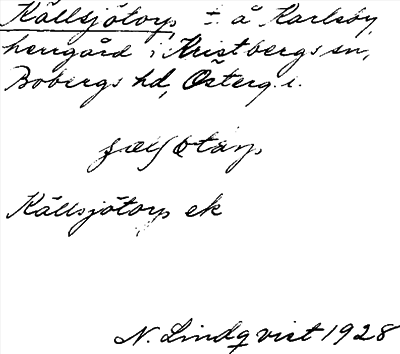 Källsjötorp, ± å Karlsby,
herrgård i Kristbergs sn,
Bobergs hd, Österg. l.
Källsjötorp ek
N. Lindqvist 1928